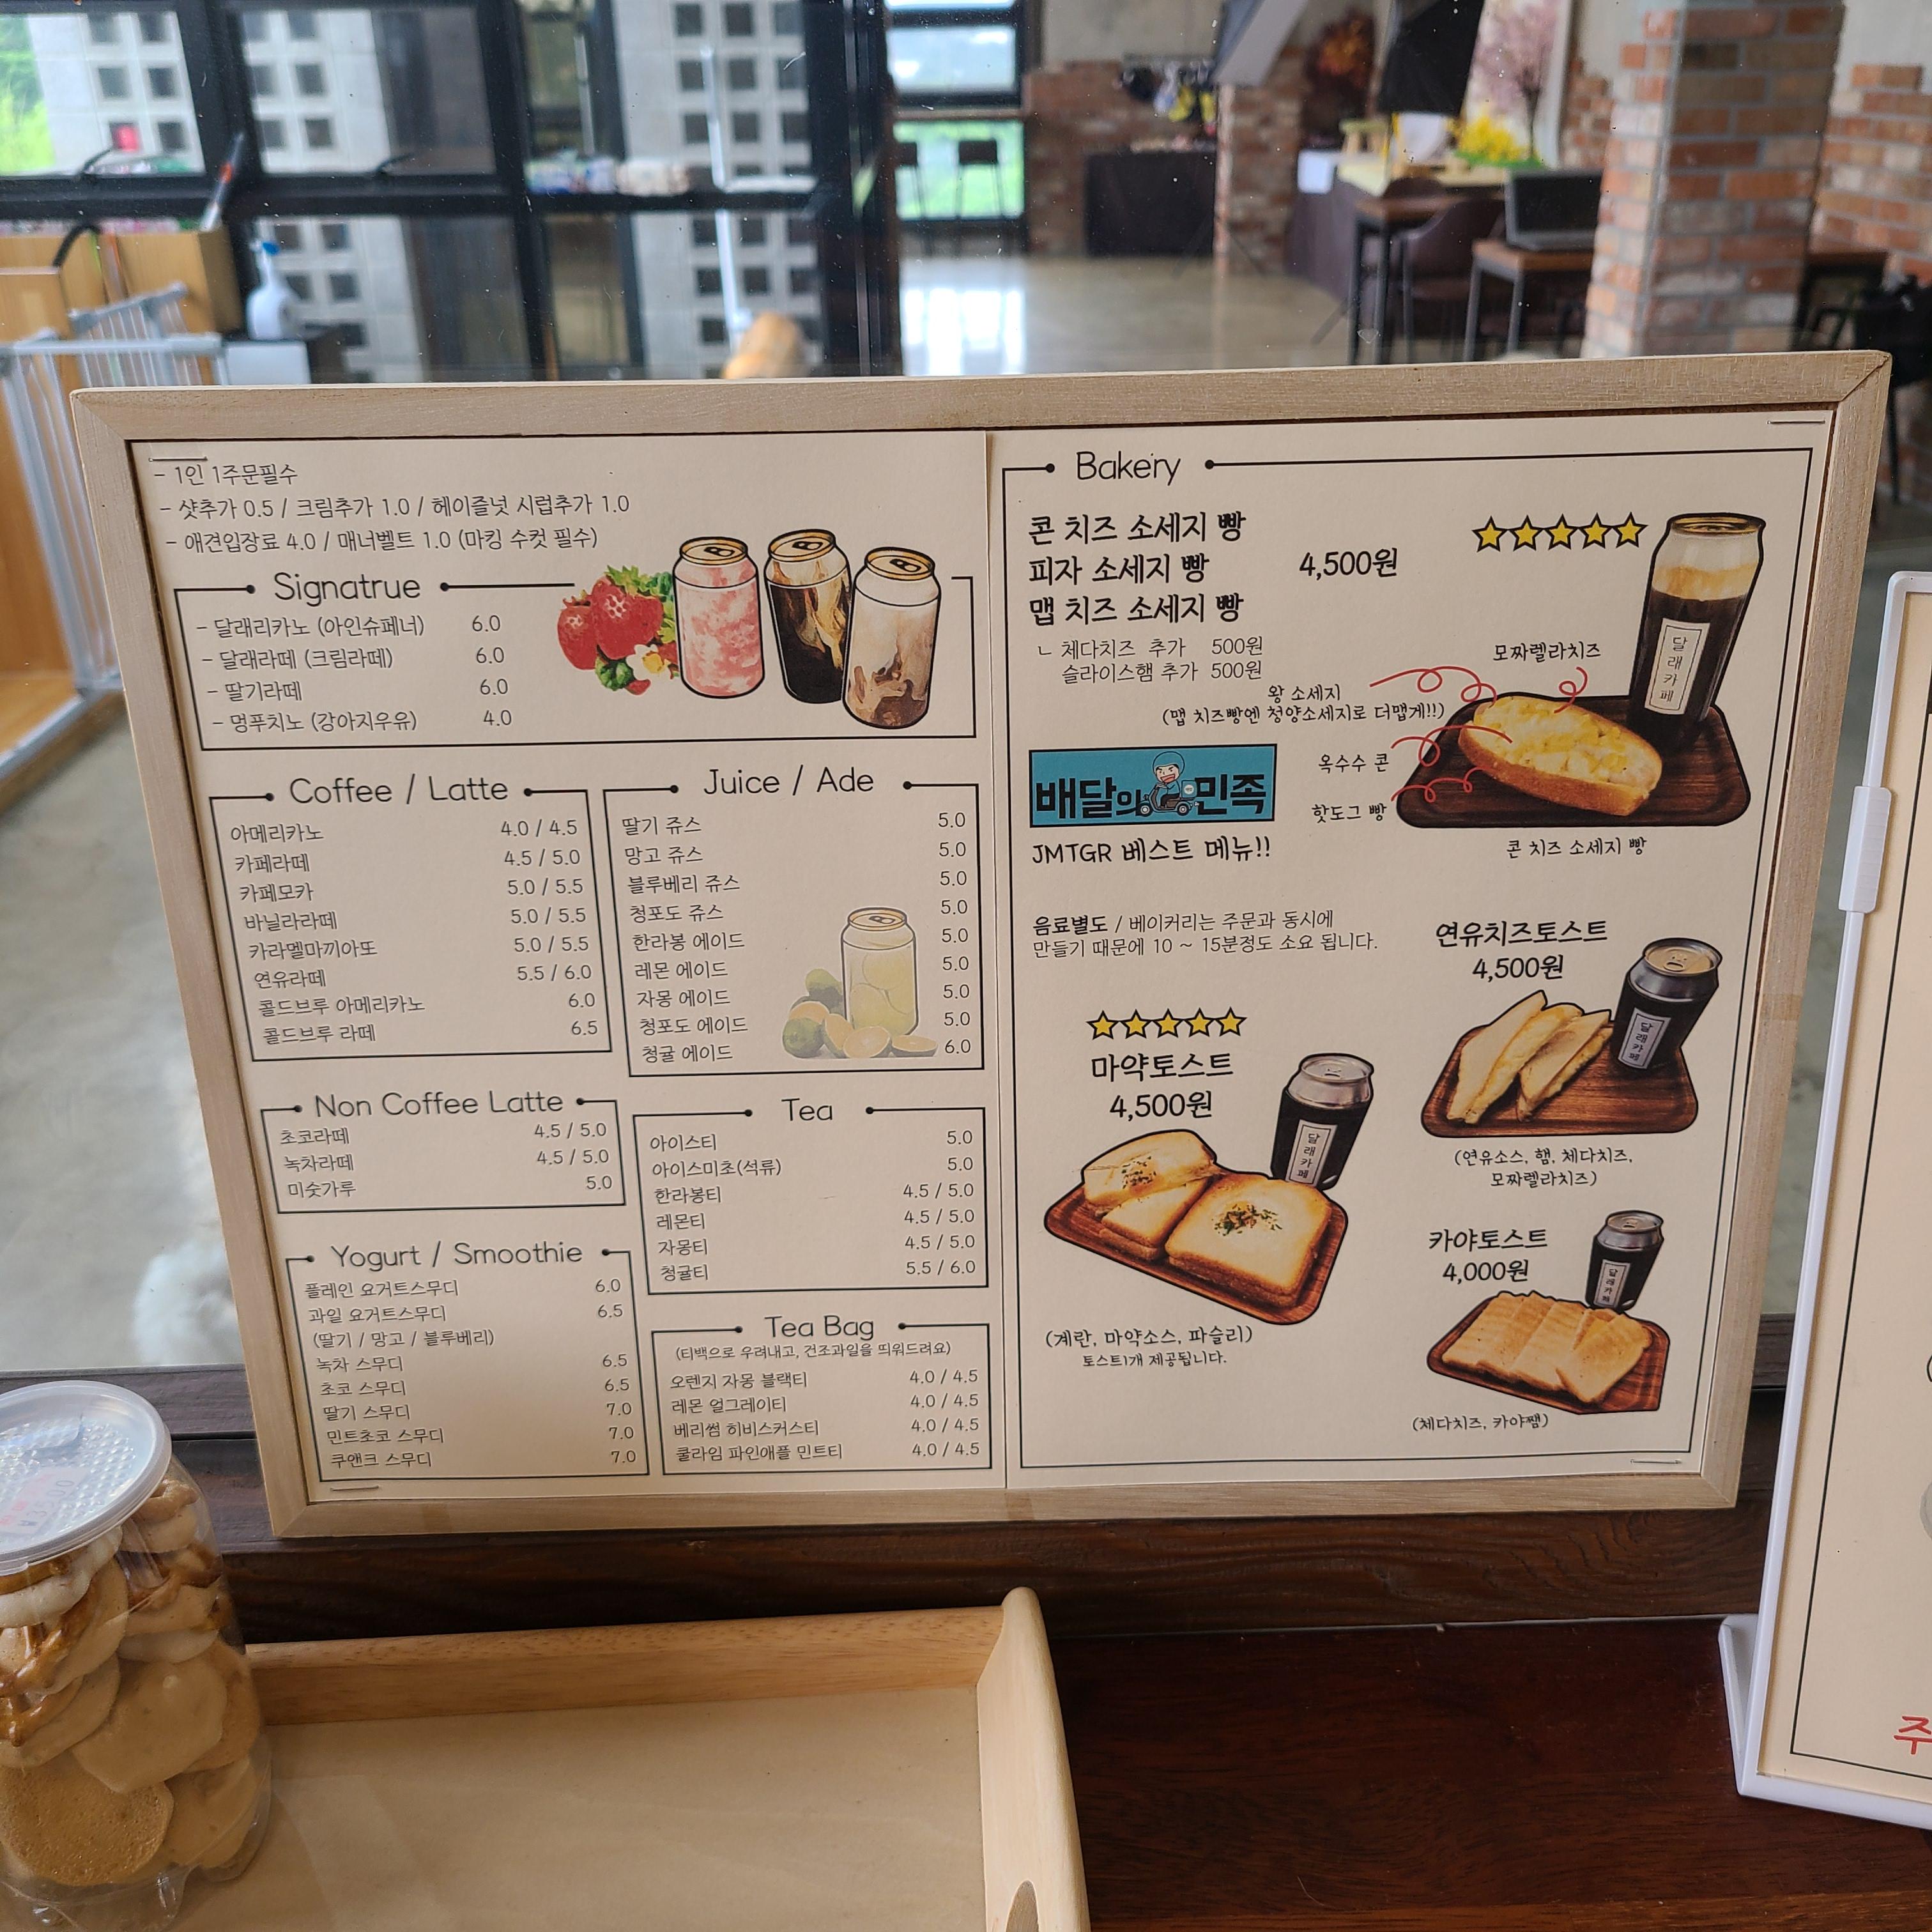 - 1인 1주문필수
- 샷추가 0.5 / 크림추가 1.0 / 헤이즐넛 시럽추가 1.0
- 애견입장료 4.0 / 매너벨트 1.0 (마킹 수컷 필수)
Signatrue
- 달래리카노 (아인슈페너) 6.0
- 달래라떼 (크림라떼) 6.0
- 딸기라떼 6.0
- 멍푸치노 (강아지우유) 4.0
Coffee / Latte
아메리카노 4.0 / 4.5
카페라떼 4.5 / 5.0
카페모카 5.0 / 5.5
바닐라라떼 5.0 / 5.5
카라멜마끼아또 5.0 / 5.5
연유라떼 5.5 / 6.0
콜드브루 아메리카노 6.0
콜드브루 라떼 6.5
Non Coffee Latte
초코라떼 4.5 / 5.0
녹차라떼 4.5 / 5.0
미숫가루 5.0
Yogurt / Smoothie
플레인 요거트스무디 6.0
과일 요거트스무디 6.5
(딸기 / 망고 / 블루베리)
녹차 스무디 6.5
초코 스무디 6.5
딸기 스무디 7.0
민트초코 스무디 7.0
쿠앤크 스무디 7.0
Juice / Ade
딸기 쥬스 5.0
망고 쥬스 5.0
블루베리 쥬스 5.0
청포도 쥬스 5.0
한라봉 에이드 5.0
레몬 에이드 5.0
자몽 에이드 5.0
청포도 에이드 5.0
청귤 에이드 6.0
Tea
아이스티 5.0
아이스미초(석류) 5.0
한라봉티 4.5 / 5.0
레몬티 4.5 / 5.0
자몽티 4.5 / 5.0
청귤티 5.5 / 6.0
Tea Bag
(티백으로 우려내고, 건조과일을 띄워드려요)
오렌지 자몽 블랙티 4.0 / 4.5
레몬 얼그레이티 4.0 / 4.5
베리썸 히비스커스티 4.0 / 4.5
쿨라임 파인애플 민트티 4.0 / 4.5
Bakery
콘 치즈 소세지 빵
피자 소세지 빵 4,500원
맵 치즈 소세지 빵
ㄴ 체다치즈 추가 500원
슬라이스햄 추가 500원
모짜렐라치즈
왕 소세지
(맵 치즈빵엔 청양소세지로 더맵게!!)
옥수수 콘
핫도그 빵
콘 치즈 소세지 빵
달래카페
배달의민족
JMTGR 베스트 메뉴!!
음료별도 / 베이커리는 주문과 동시에
만들기 때문에 10 ~ 15분정도 소요 됩니다.
연유치즈토스트
4,500원
달래카페
(연유소스, 햄, 체다치즈,
모짜렐라치즈)
마약토스트
4,500원
달래카페
(계란, 마약소스, 파슬리)
토스트1개 제공됩니다.
카야토스트
4,000원
달래카페
(체다치즈, 카야쨈)
주